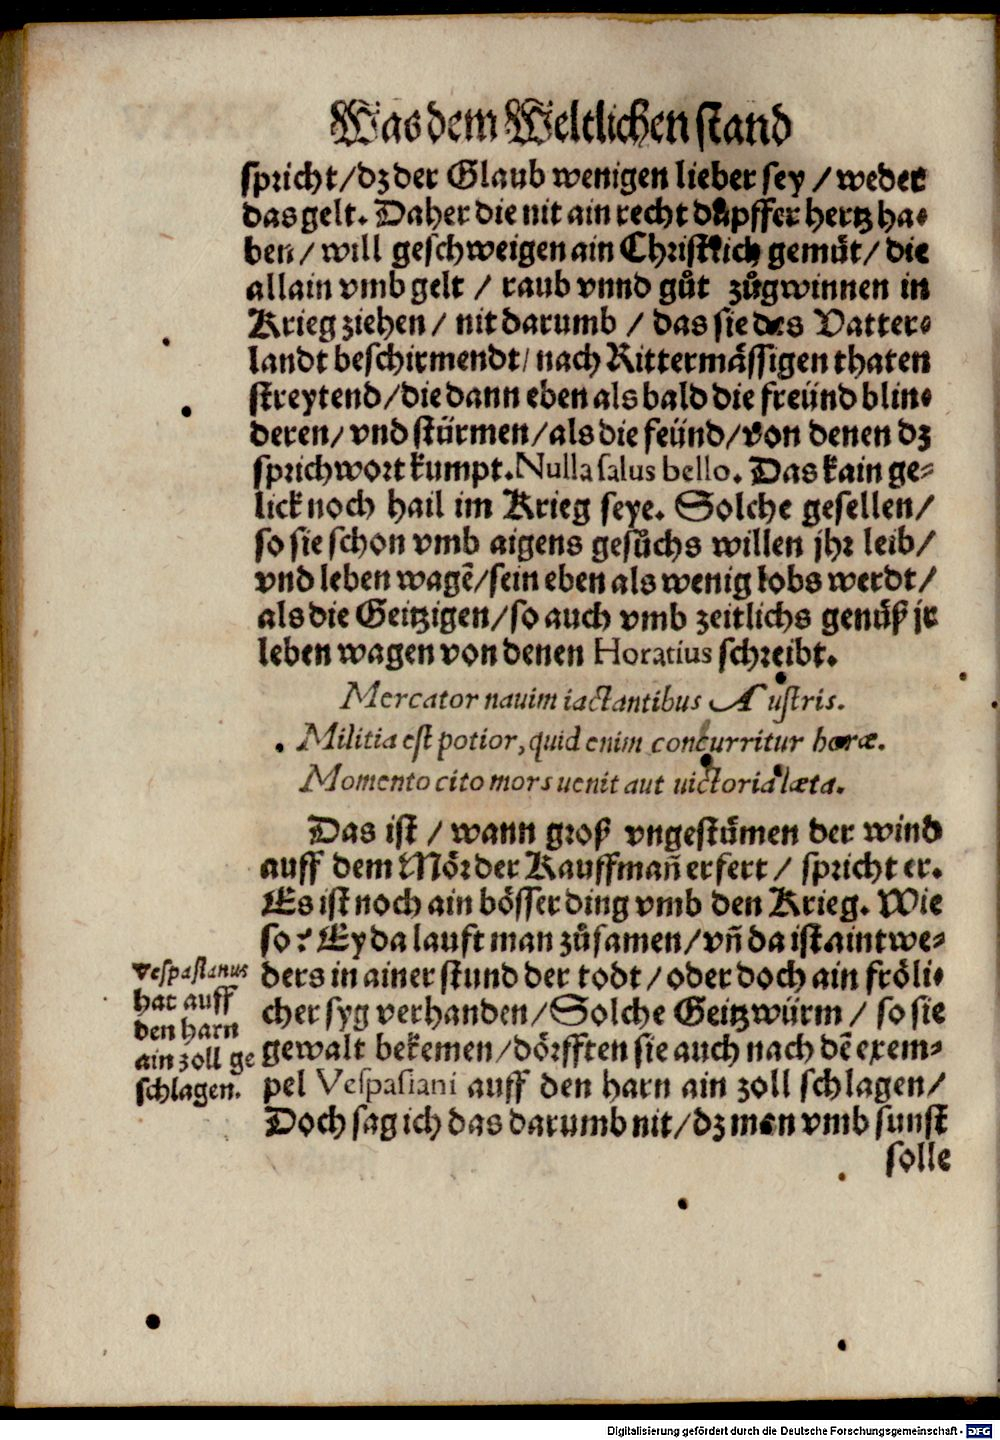 Was dem Weltlichen stand
spricht / dz der Glaub wenigen lieber sey / weder
das gelt. Daher die nit ain recht dapffer hertz ha⸗
ben / will geschweigen ain Christlich gemuͤt / die
allain vmb gelt / raub vnnd guͦt zuͦgwinnen in
Krieg ziehen / nit darumb / das sie des Vatter⸗
landt beschirmendt / nach Rittermaͤssigen thaten
streytend / die dann eben als bald die freünd blin⸗
deren / vnd stürmen / als die feünd / von denen dz
sprichwort kumpt. Nulla salus bello. Das kain ge⸗
lick noch hail im Krieg seye. Solche gesellen /
so sie schon vmb aigens gesuͦchs willen jhr leib /
vnd leben wagẽ / sein eben als wenig lobs werdt /
als die Geitzigen / so auch vmb zeitlichs genuͦß jr
leben wagen von denen Horatius schreibt.
Mercator nauim iactantibus Austris.
Militia est potior, quid enim concurritur horæ.
Momento cito mors uenit aut uictoria læta.
Das ist / wann groß vngestuͤmen der wind
auff dem Moͤr der Kauffmañ erfert / spricht er.
Es ist noch ain boͤsser ding vmb den Krieg. Wie
so? Ey da lauft man zuͦsamen / vñ da ist aintwe⸗
ders in ainer stund der todt / oder doch ain froͤli⸗
cher syg verhanden / Solche Geitzwürm / so sie
gewalt bekemen / doͤrfften sie auch nach dẽ exem⸗
pel Vespasiani auff den harn ain zoll schlagen /
Doch sag ich das darumb nit / dz man vmb sunst
solle
Vespasianus
hat auff
den harn
ain zoll ge
schlagen.
Digitalisierung gefördert durch die Deutsche Forschungsgemeinschaft - DFG